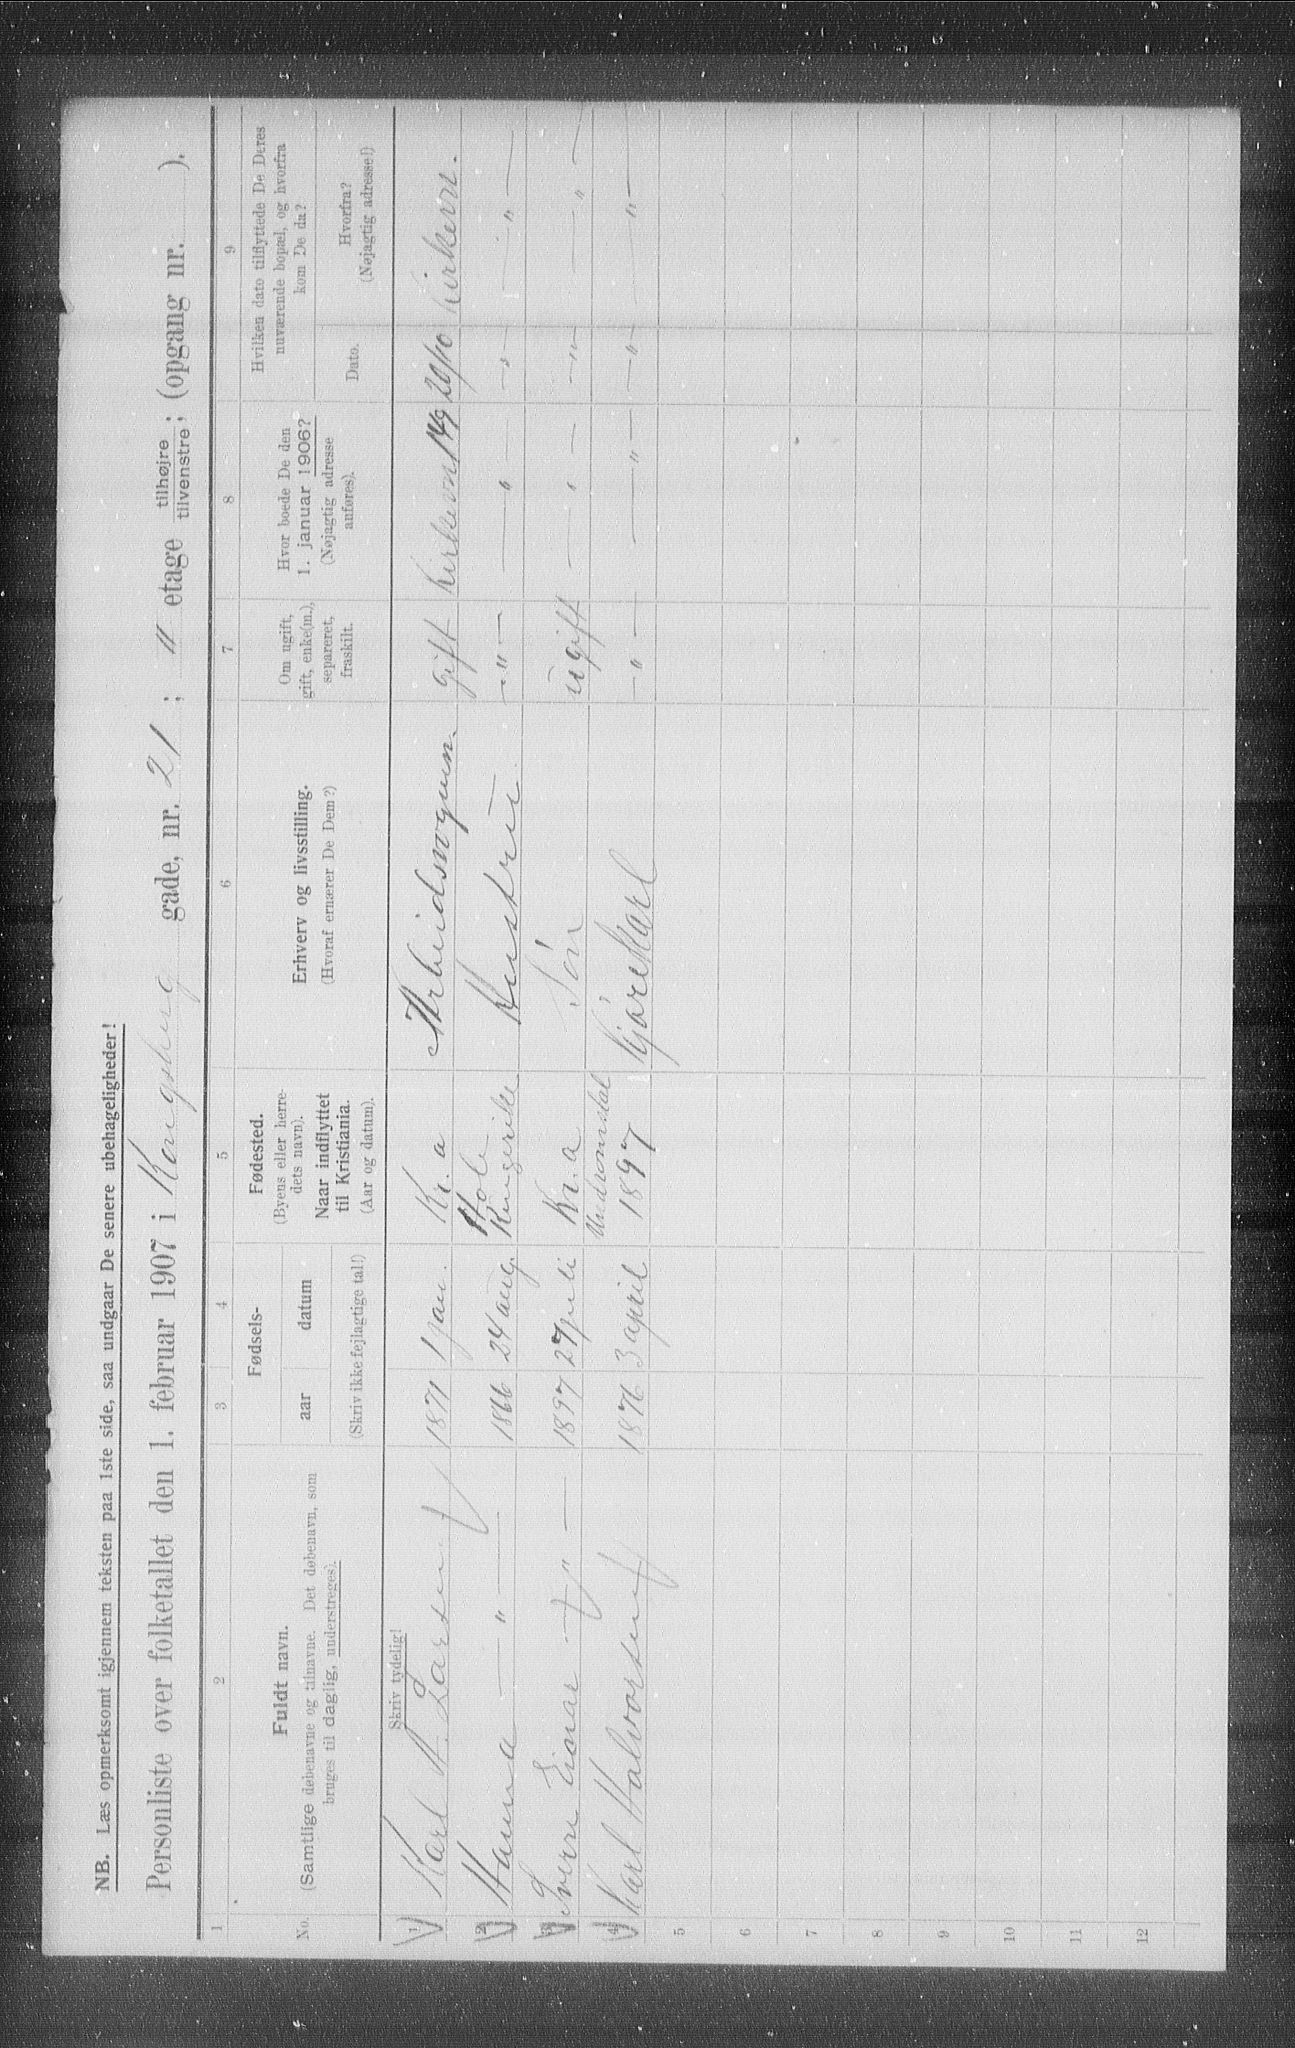 NB. Læs opmerksomt igjennem teksten paa 1ste side, saa undgaar De senere ubehageligheder!
Personliste over folketallet den 1. februar 1907 i Kongsberg gade, nr. 21; " etage tilhøjre tilvenstre; (opgang nr. ).
1 2 3 4 5 6 7 8 9
No.
Fuldt navn.
(Samtlige døbenavne og tilnavne. Det døbenavn, som
bruges til daglig, understreges).
Fødsels-
aar datum
(Skriv ikke fejlagtige tal!)
Fødested.
(Byens eller herre-
dets navn).
Naar indflyttet
til Kristiania.
(Aar og datum).
Erhverv og livsstilling.
(Hvoraf ernærer De Dem?)
Om ugift,
gift, enke(m.),
separeret,
fraskilt.
Hvor boede De den
1. januar 1906?
(Nøjagtig adresse
anføres).
Hvilken dato tilflyttede De Deres
nuværende bopæl, og hvorfra
kom De da?
Dato.
Hvorfra?
(Nøjagtig adresse!)
Skriv tydelig!
1 Karl A. Larsen 1871 1 jan. Kr. a gift 149 20/10
2 Hanna — " — 1866 24 aug. Hole Ringerike Hustru — " — — " — — " — — " —
3 Sverre Einar — " — 1897 27 juli Kr. a Søn ugift — " — — " — — " —
4 Karl Halvorsen 1876 3 april 1897 Kjørekarl — " — — " — — " — — " —
5
6
7
8
9
10
11
12